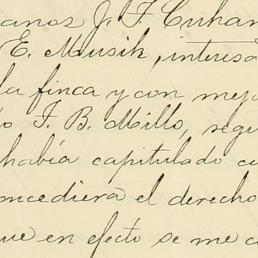 anos J. F. Cunan
E. Musik, interesa
la finca y con mej
o F. B. Mills, segu
había capitulado cu
oncediera el derecho
ue en efecto se me c